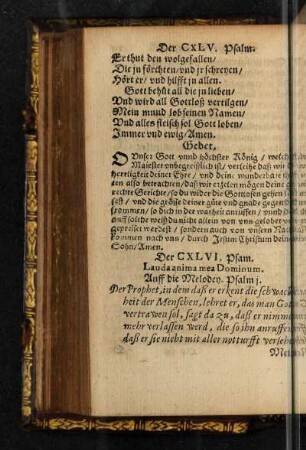 Der CXLV. Psalm.
Er thut den wolgefallen/
Die jn förchten/vnd jr schreyen/
Hört er/vnd hilfft jn allen.
Gott behüt all die jn lieben/
Vnd wird all Gottloß vertilgen/
Mein mund lob seinen Namen/
Vnd alles fleisch sol Gott loben/
Immer vnd ewig/Amen.
Gebet.
O Vnser Gott vnnd höchster König/
Maiestet vnbegreifflich ist/verleihe daß wir
herrligkeit deiner Ehre/vnd dein wunderbare
ten also betrachten/daß wir erzelen mögen deine
rechte Gerichte/so du wider die Gottlosen gehen
sest/vnd die grösse deiner güte vnd gnade gegen
frommen/so dich in der warheit anruffen/vnd
auff solche weiß du nicht allein von vnn gelobet
gepreiset werdest/sondern auch von vnsern
kommen nach vns/durch Jesum Christum deinen
Sohn/Amen.
Der CXLVI. Psam.
Lauda anima mea Dominum.
Auff die Melodey. Psalm j.
Der Prophet, in dem daß er erkent die schwach
heit der Menschen, lehret er, das man Gott
vertrawen sol, sagt dazu, daß er nimmer
mehr verlassen werd, die so ihn anruffen
daß er sie nicht mit aller notturfft versehe